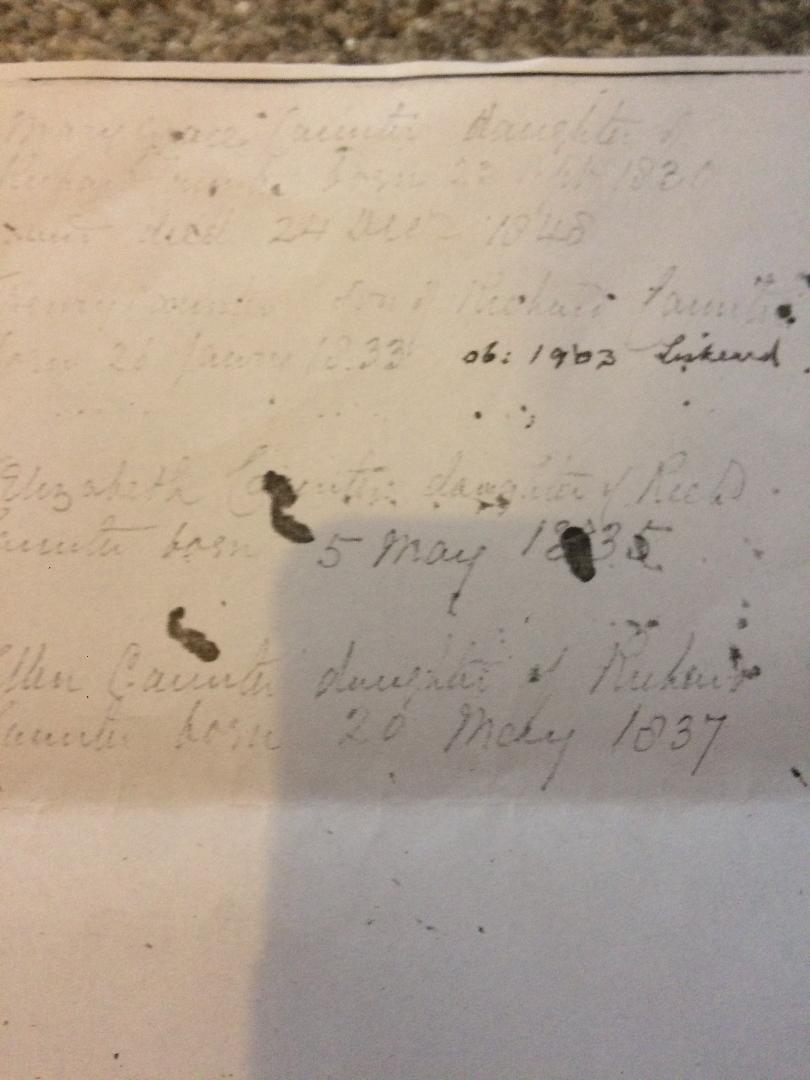 Mary Grace Caunter daughter of
Richard Caunter born 23 1830
Caunter died 24 Decr 1848
Henry Caunter son of Richard Caunter
born 26 Janry 1833 ob: 1903 Liskeard
Elizabeth Caunter daughter of Richd
Caunter born 5 May 1835
Ellen Caunter daughter of Richard
Caunter born 20 May 1837